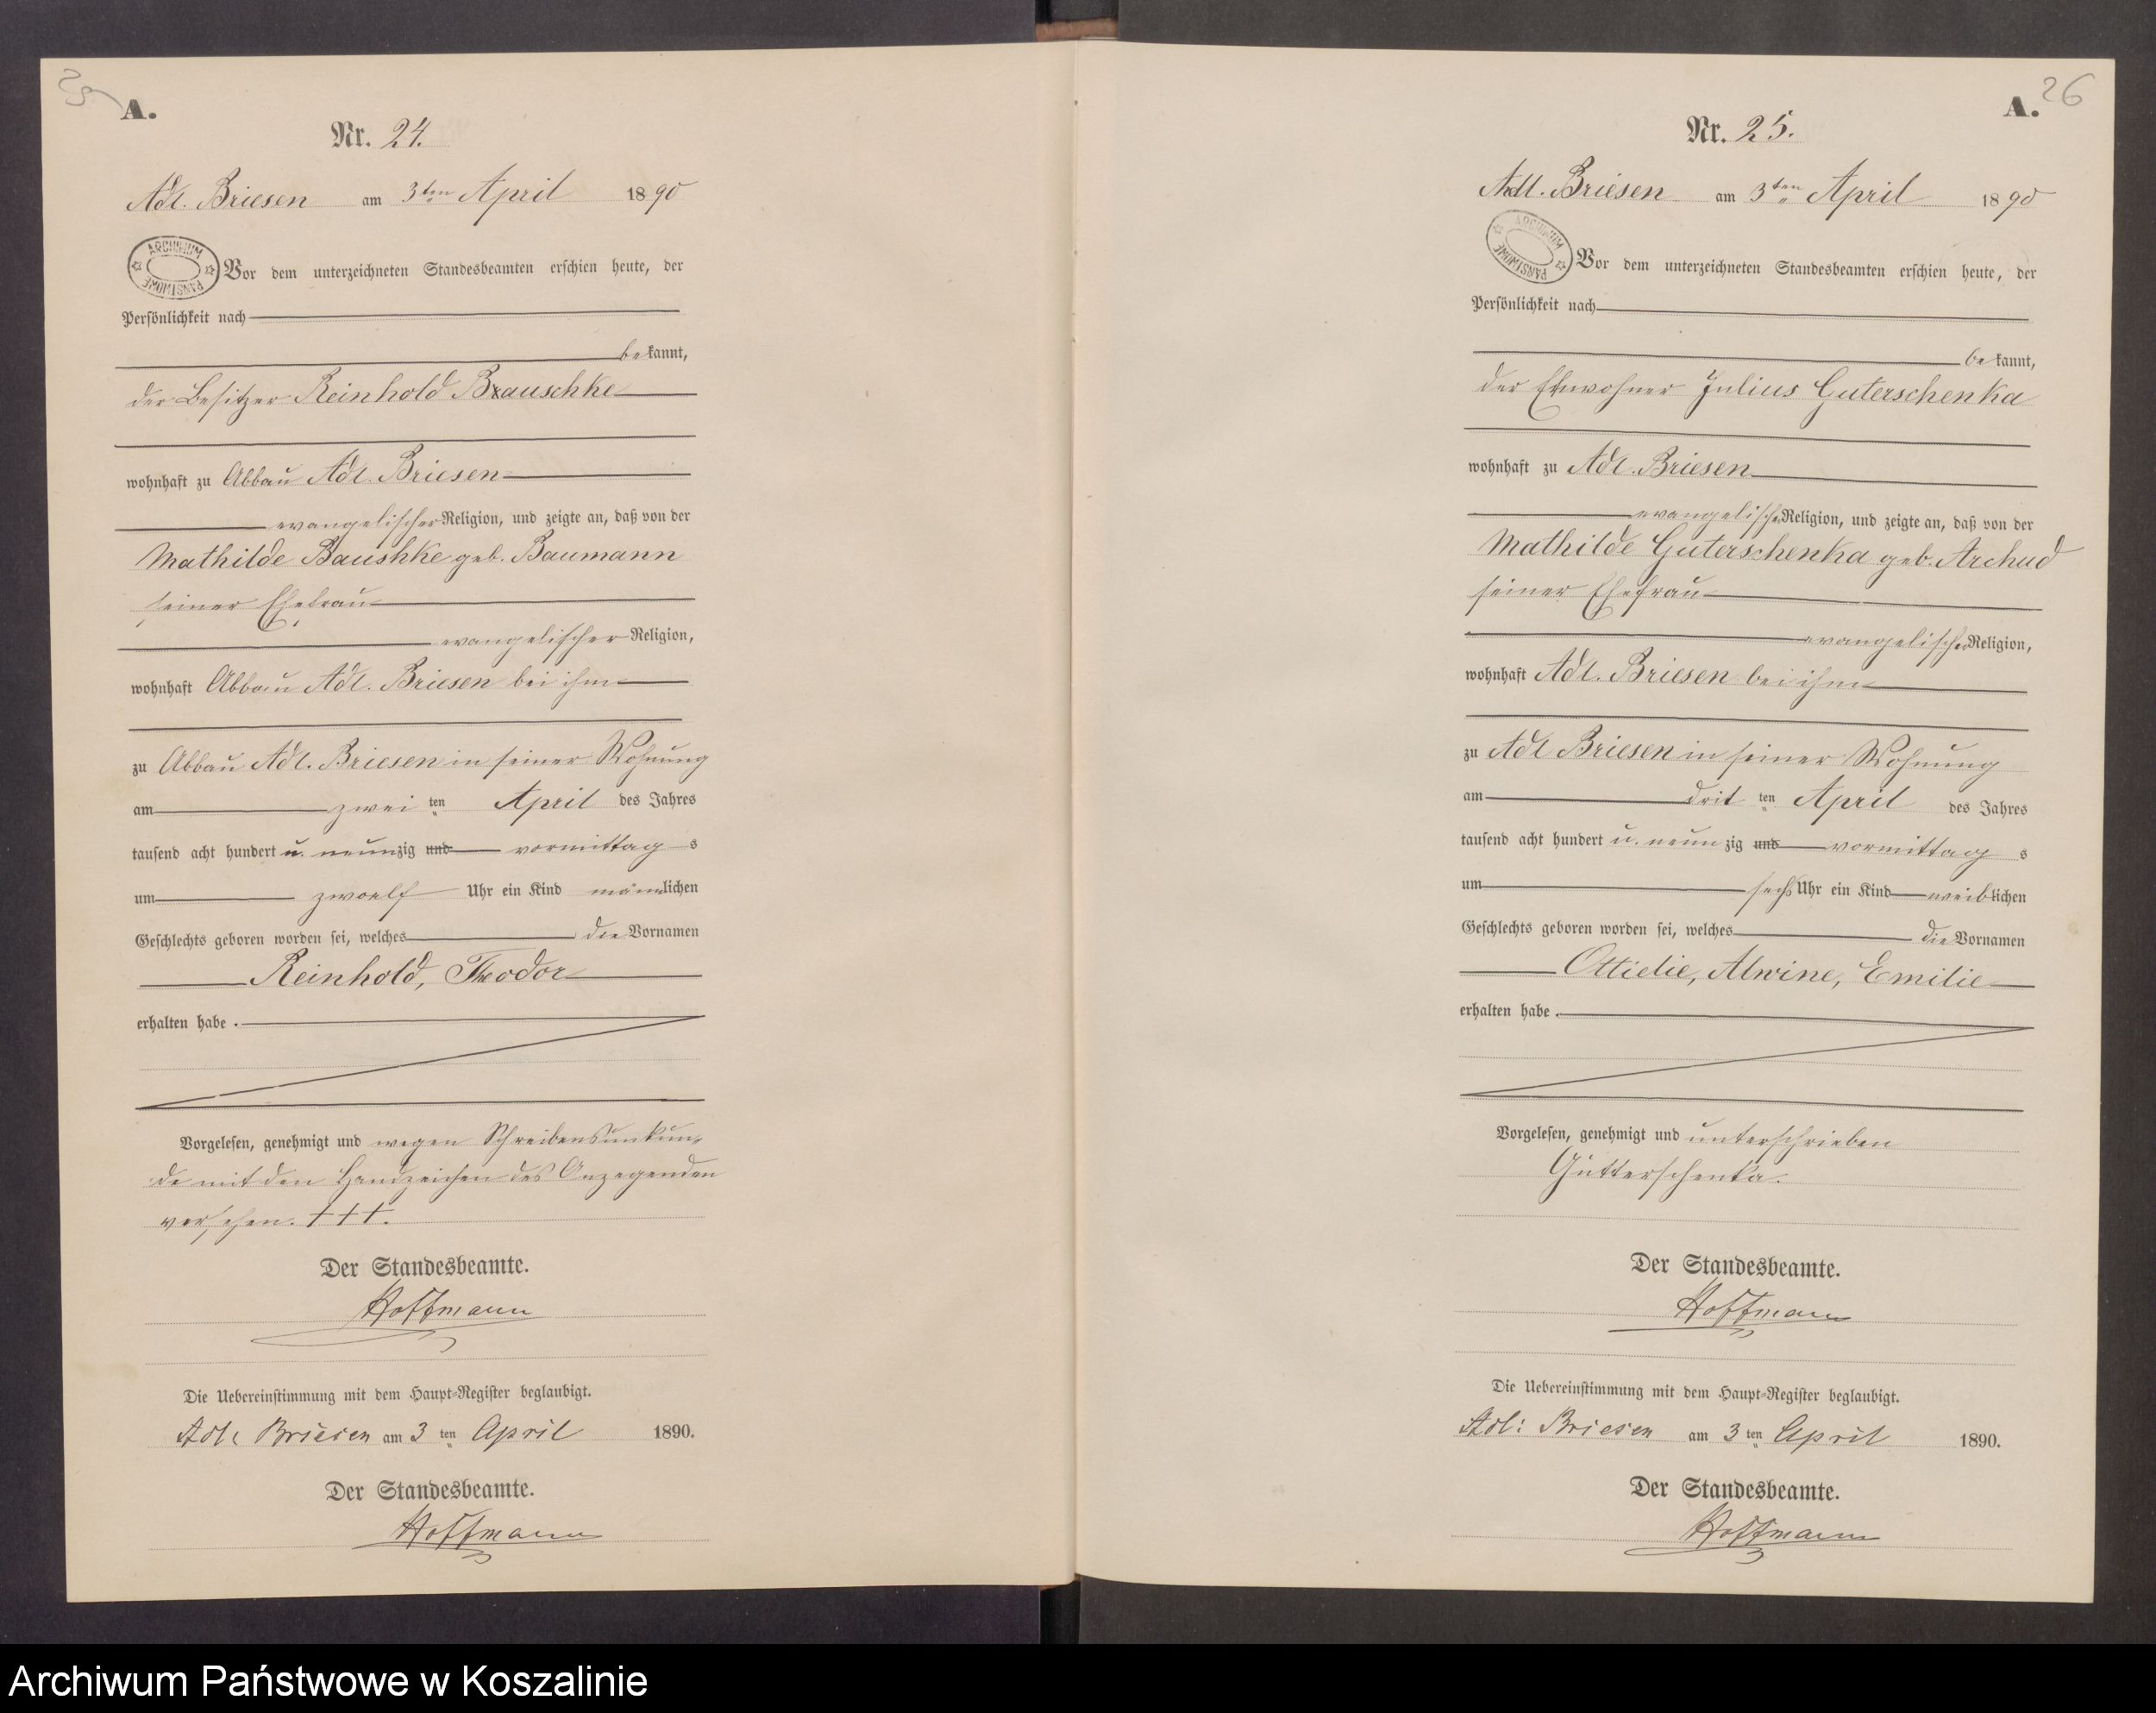 25
A.
Nr. 24.
Adl. Briesen am 3ten April 1890
ARCHIWUM PAŃSTWOWE
Vor dem unterzeichneten Standesbeamten erschien heute, der
Persönlichkeit nach
bekannt,
der Besitzer Reinhold Brauschke
wohnhaft zu Abbau Adl. Briesen
evangelischer Religion, und zeigte an, daß von der
Mathilde Baushke geb. Baumann
seiner Ehefrau
evangelischer Religion,
wohnhaft Abbau Adl. Briesen bei ihm
zu Abbau Adl. Briesen in seiner Wohnung
am zwei ten April des Jahres
tausend acht hundert u. neunzig und vormittags
um zwoelf Uhr ein Kind männlichen
Geschlechts geboren worden sei, welches die Vornamen
Reinhold, Theodor
erhalten habe.
Vorgelesen, genehmigt und wegen Schreibensunkun-
de mit den Handzeichen des Anzegenden
versehen. +++.
Der Standesbeamte.
Hoffmann
Die Uebereinstimmung mit dem Haupt-Register beglaubigt.
Adl: Briesen am 3 ten April 1890.
Der Standesbeamte.
Hoffmann
26
A.
Nr. 25.
Adl. Briesen am 3ten April 1890
ARCHIWUM PAŃSTWOWE
Vor dem unterzeichneten Standesbeamten erschien heute, der
Persönlichkeit nach
bekannt,
der Einwohner Julius Guterschenka
wohnhaft zu Adl. Briesen
evangelischer Religion, und zeigte an, daß von der
Mathilde Guterschenka geb. Archud
seiner Ehefrau
evangelischer Religion,
wohnhaft Adl. Briesen bei ihm
zu Adl Briesen in seiner Wohnung
am drit ten April des Jahres
tausend acht hundert u. neunzig und vormittags
um sechs Uhr ein Kind weiblichen
Geschlechts geboren worden sei, welches die Vornamen
Ottielie, Alwine, Emilie
erhalten habe.
Vorgelesen, genehmigt und unterschrieben
Gutterschenka.
Der Standesbeamte.
Hoffmann
Die Uebereinstimmung mit dem Haupt-Register beglaubigt.
Adl: Briesen am 3 ten April 1890.
Der Standesbeamte.
Hoffmann
Archiwum Państwowe w Koszalinie